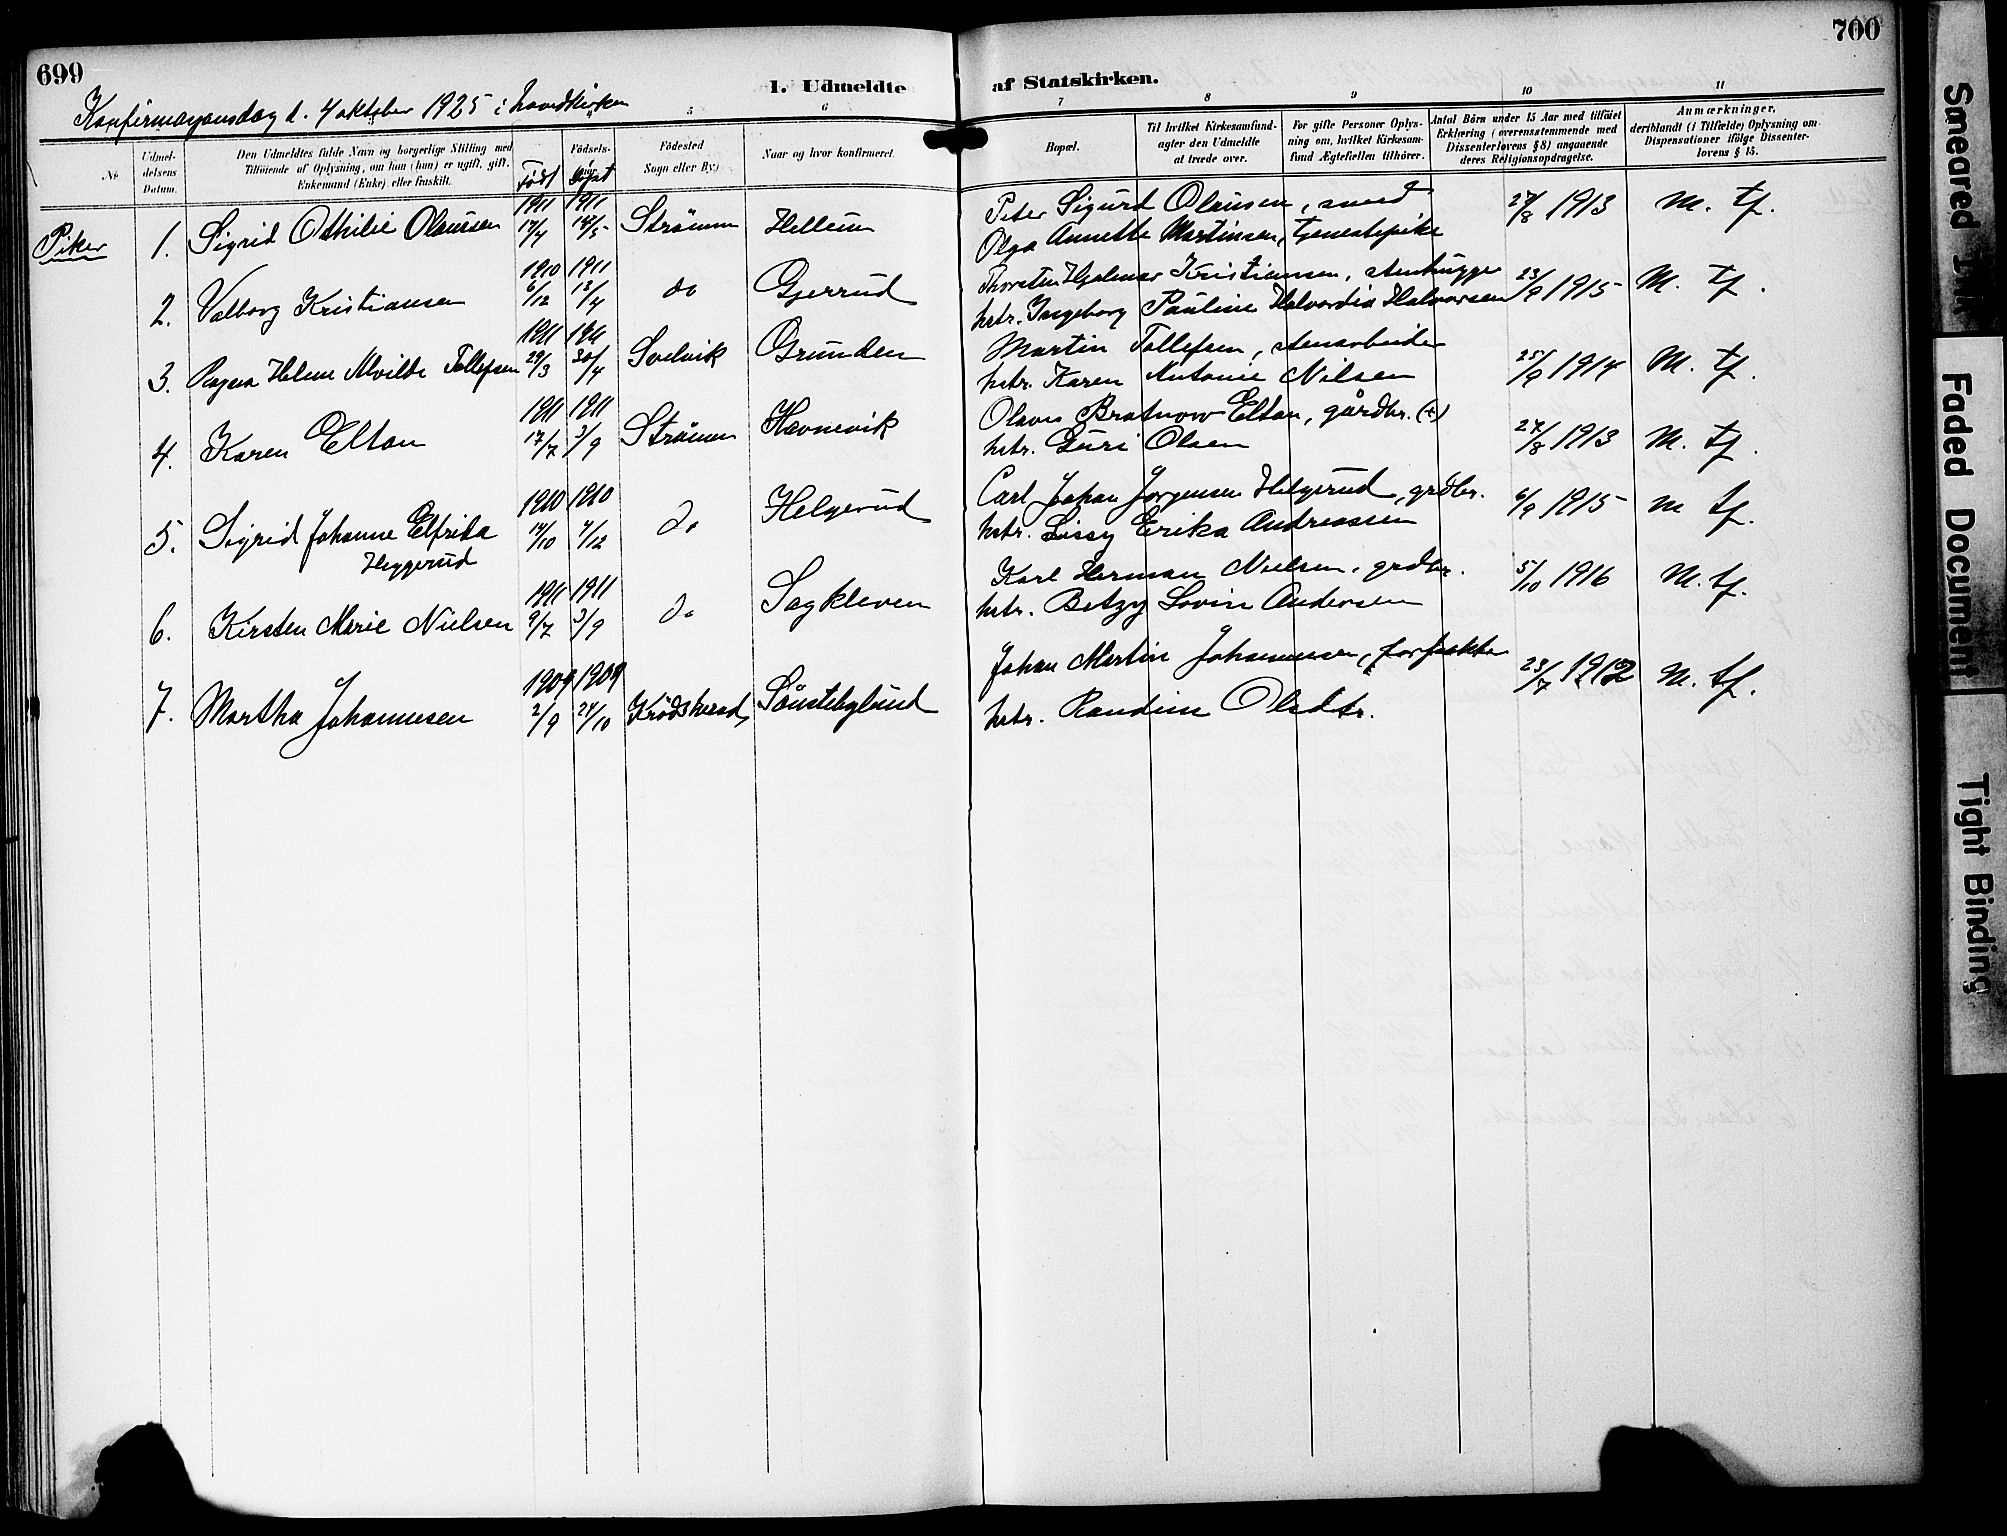 699
700
1. Udmeldte af Statskirken.
Konfirmasjonsdag d. 4 oktober 1925 i hovedkirken
5 6 7 8 9 10 11
No
Udmel-
delsens
Datum.
Den Udmeldtes fulde Navn og borgerlige Stilling med
Tilföiende af Oplysning, om han (hun) er ugift, gift,
Enkemand (Enke) eller fraskilt.
Født
Fødsels-
aar
Døpt
Födested
Sogn eller By)
Naar og hvor konfirmeret.
Bopæl.
Til hvilket Kirkesamfund-
agter den Udmeldte
at træde over.
For gifte Personer Oplys-
ning om, hvilket Kirkesam-
fund Ægtefællen tilhörer.
Antal Börn under 15 Aar med tilföiet
Erklæring (overensstemmende med
Dissenterlovens § 8) angaaende
deres Religionsopdragelse.
Anmærkninger,
deriblandt (i Tilfælde) Oplysning om
Dispensationer ifölge Dissenter-
lovens § 15.
Piker
1. Sigrid Othilie Olaussen 1911 17/4 1911 14/5 Strømm Hellum Peter Sigurd Olaussen, smed 27/8 1913 M. tf.
Olga Annette Martinsen, tjenestepike
2. Valborg Kristiansen 1910 6/12 1911 13/4 do Gjerrud Thorsten Hjalmar Kristiansen, stenhugger 23/9 1915 M. tf.
hstr. Ingeborg Pauline Halvordia Halvorsen
3. Ragna Helene Alvilde Tollefsen 1911 29/3 1911 30/4 Svelvik Grunden Martin Tollefsen, stenarbeider 25/9 1914 M. tf.
hstr. Karen Antonie Nilsen
4. Karen Elton 1911 17/7 1911 3/9 Strømm Havnevik Olaves Elton, gårdbr. (+) 27/8 1913 M. tf.
hstr. Guri Olsen
5. Sigrid Johanne Elfrida 1910 14/10 1910 4/12 do Helgerud Carl Johan Jørgensen Helgerud, grdbr. 6/9 1915 M tf.
Heggerud
hstr. Lissy Erika Andreassen
6. Kirsten Marie Nielsen 1911 9/7 1911 3/9 do Sagkleven Karl Herman Nielsen, grdbr. 5/10 1916 M. tf.
hstr. Betzy Lovise Andersen
7. Martha Johannesen 1909 2/9 1909 24/10 Krødsherad Sønstebylund Johan Martin Johannesen, forpakter 23/7 1912 M. tf.
hstr. Randine Olsdtr.
Smeared Ink
Faded Document
Tight Binding